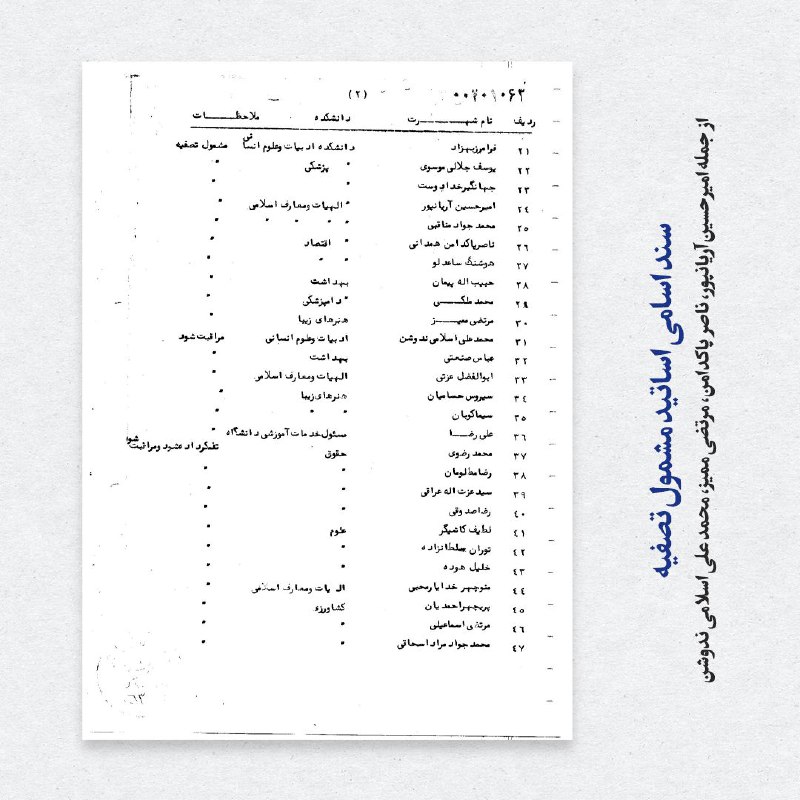 ۰۰۷۰۱۰۶۳ (۲)
ردیف نام شهرت دانشکده ملاحظات
۲۱ فرامرز بهزاد دانشکده ادبیات وعلوم انسانی مشمول تصفیه
۲۲ یوسف جلالی موسوی " پزشکی "
۲۳ جهانگیر خداد وست " "
۲۴ امیرحسین آریانپور " الهیات ومعارف اسلامی "
۲۵ محمد جواد مناقبی " " " " "
۲۶ ناصرپاکدامن همدانی " اقتصاد "
۲۷ هوشنگ ساعدلو " " "
۲۸ حبیب اله پیمان بهداشت "
۲۹ محمد ملکی " دامپزشکی "
۳۰ مرتضی ممیز هنرهای زیبا "
۳۱ محمدعلی اسلامی ندوشن ادبیات وعلوم انسانی مراقبت شود
۳۲ عباس صنعتی بهداشت "
۳۳ ابوالفضل عزتی الهیات ومعارف اسلامی "
۳۴ سیروس حسامیان هنرهای زیبا "
۳۵ سیماکوبان " " "
۳۶ علی رضا مسئول خدمات آموزشی دانشگاه "
۳۷ محمد رضوی حقوق تذکرداده شود ومراقبت شود
۳۸ رضامظلومان " "
۳۹ سیدعزت اله عراقی " "
۴۰ رضاصدوقی " "
۴۱ لطیف کاشیگر علوم "
۴۲ توران سلطانزاده " "
۴۳ خلیل هوده " "
۴۴ منوچهر خدایارمحبی الهیات ومعارف اسلامی "
۴۵ پریچهراحمدیان کشاورزی "
۴۶ مرتضی اسماعیلی " "
۴۷ محمد جواد مراد اسحاقی " "
سند اسامی اساتید مشمول تصفیه
از جمله امیرحسین آریانپور، ناصر پاکدامن، مرتضی ممیز، محمد علی اسلامی ندوشن